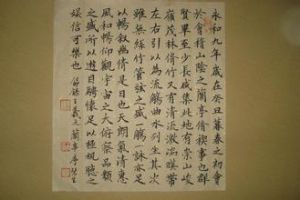 永和九年歲在癸丑暮春之初會
於會稽山陰之蘭亭脩禊事也群
賢畢至少長咸集此地有崇山峻
嶺茂林脩竹又有清流激湍暎帶
左右引以為流觴曲水列坐其次
雖無絲竹管弦之盛一觴一詠亦足
以暢敘幽情是日也天朗氣清惠
風和暢仰觀宇宙之大俯察品類
之盛所以遊目騁懷足以極視聽之
娛信可樂也 節錄王羲之蘭亭序